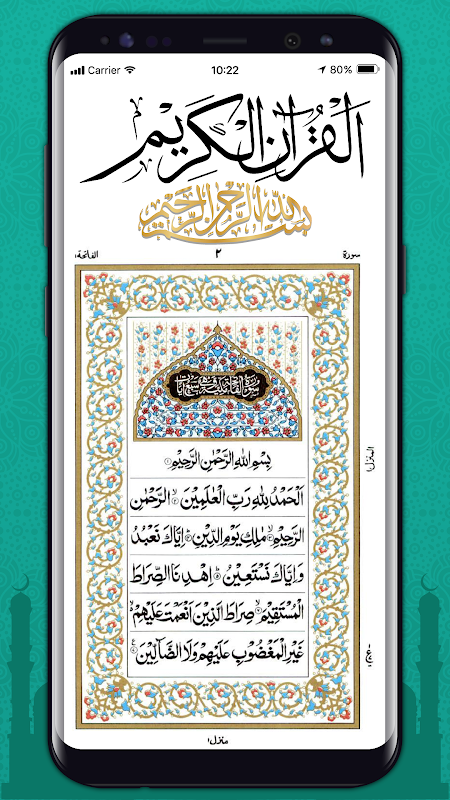 Carrier 10:22 80%
القرآن الكريم
بسم الله الرحمن الرحيم
سورة ٢ الفاتحة١
سورة الفاتحة مكية وهي سبع آيات
بِسْمِ اللهِ الرَّحْمٰنِ الرَّحِيْمِ
اَلْحَمْدُ لِلّٰهِ رَبِّ الْعٰلَمِيْنَ الرَّحْمٰنِ
الرَّحِيْمِ مٰلِكِ يَوْمِ الدِّيْنِ اِيَّاكَ نَعْبُدُ
وَاِيَّاكَ نَسْتَعِيْنُ اِهْدِنَا الصِّرَاطَ
الْمُسْتَقِيْمَ صِرَاطَ الَّذِيْنَ اَنْعَمْتَ عَلَيْهِمْ
غَيْرِ الْمَغْضُوْبِ عَلَيْهِمْ وَلَا الضَّآلِّيْنَ
المنزل١
منزل١